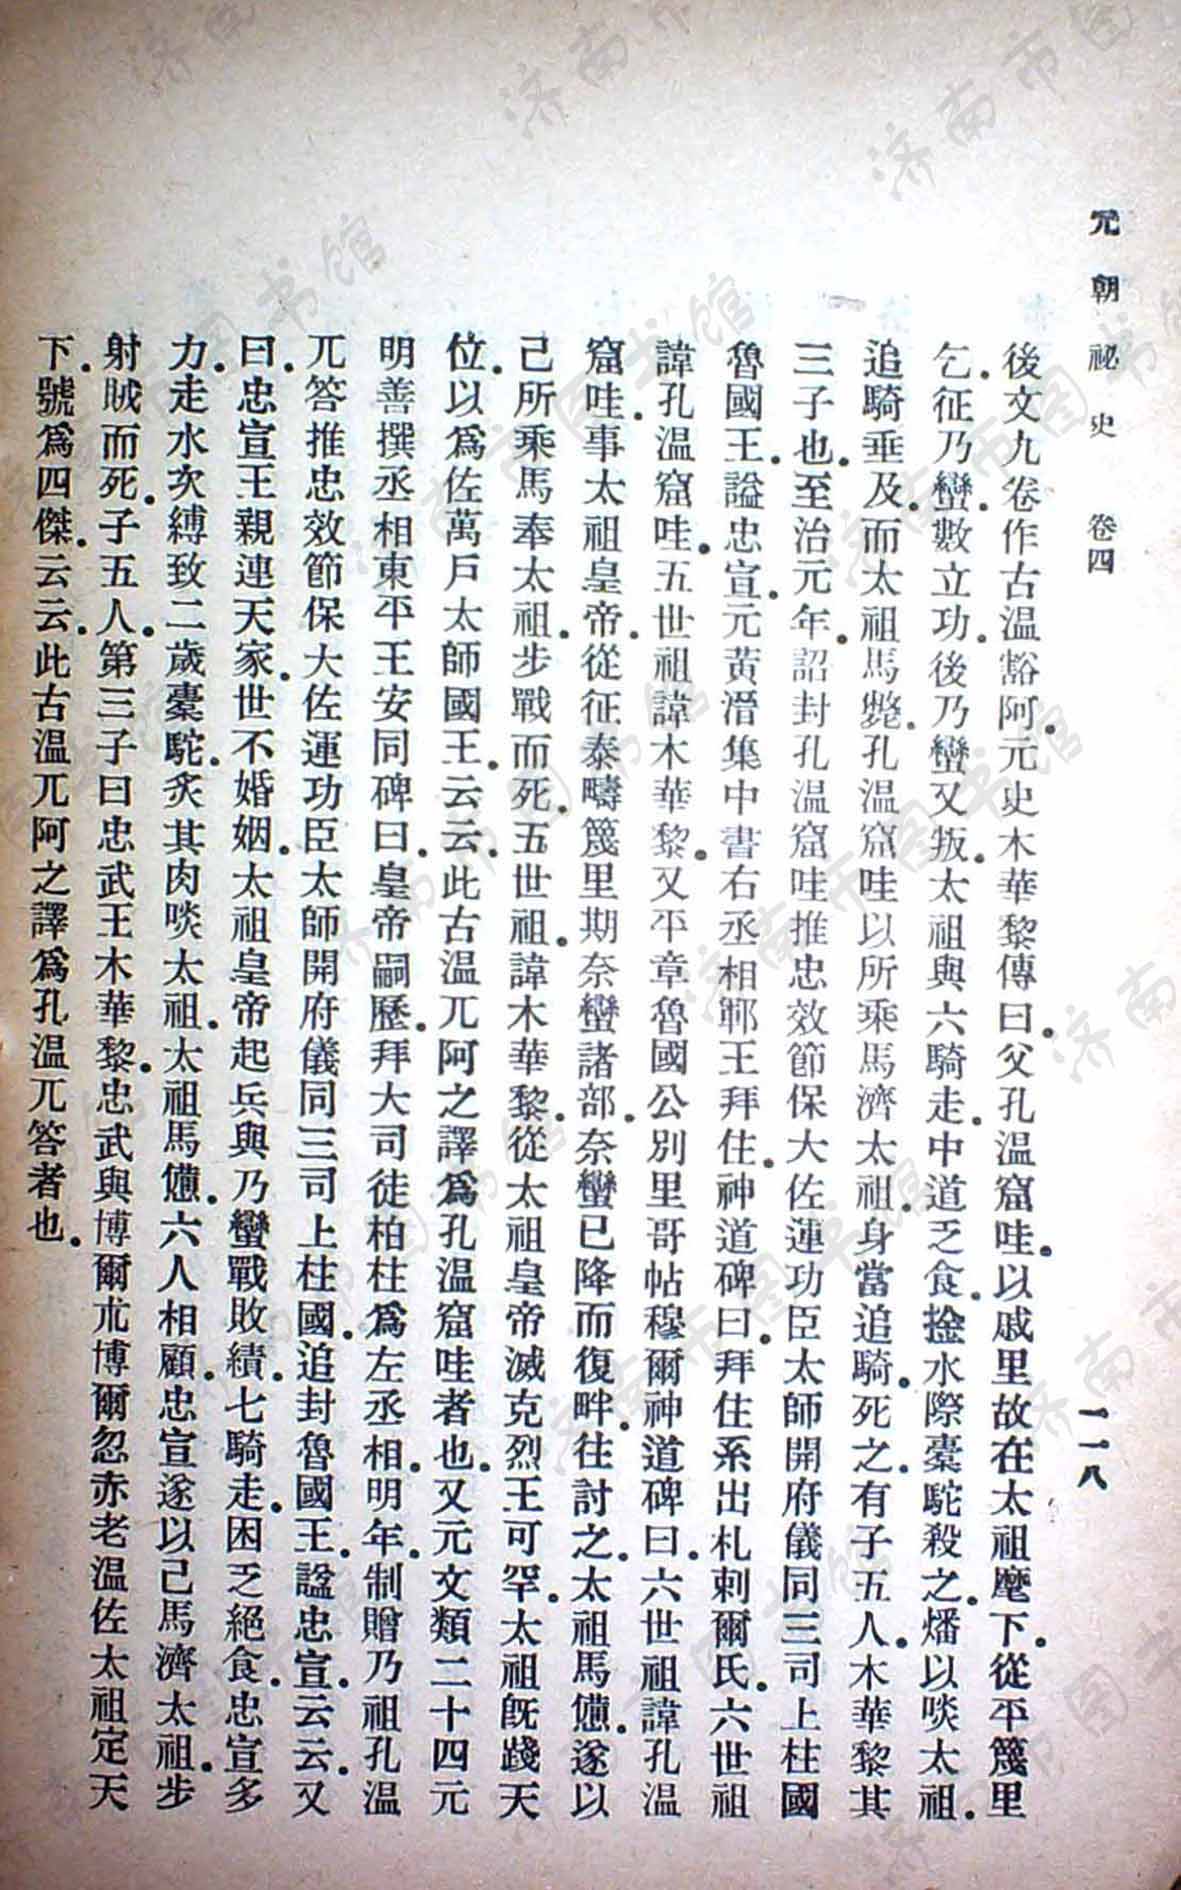 元朝祕史　卷四　一一八
後文九卷作古温豁阿。元史木華黎傳曰。父孔温窟哇。以戚里故在太祖麾下。從平篾里
乞。征乃蠻。數立功。後乃蠻又叛。太祖與六騎走。中道乏食。擒水際橐駝殺之。燔以啖太祖。
追騎垂及。而太祖馬斃。孔温窟哇以所乘馬濟太祖。身當追騎。死之。有子五人。木華黎其
三子也。至治元年。詔封孔温窟哇推忠效節保大佐運功臣太師開府儀同三司上柱國
魯國王。謚忠宣。元黃溍集中書右丞相鄆王拜住。神道碑曰。拜住系出札剌爾氏。六世祖
諱孔温窟哇。五世祖諱木華黎。又平章魯國公別里哥帖穆爾神道碑曰。六世祖諱孔温
窟哇。事太祖皇帝。從征泰疇篾里期奈蠻諸部。奈蠻已降而復畔。往討之。太祖馬憊。遂以
己所乘馬奉太祖。步戰而死。五世祖。諱木華黎。從太祖皇帝滅克烈王可罕。太祖旣踐天
位。以爲佐萬戶太師國王。云云。此古温兀阿之譯爲孔温窟哇者也。又元文類二十四元
明善撰丞相東平王安同碑曰。皇帝嗣歷。拜大司徒柏柱爲左丞相。明年。制贈乃祖孔温
兀答推忠效節保大佐運功臣太師開府儀同三司上柱國。追封魯國王。諡忠宣。云云。又
曰。忠宣王親連天家。世不婚姻。太祖皇帝起兵與乃蠻戰敗績。七騎走。困乏絕食。忠宣多
力。走水次縛致二歲橐駝。炙其肉啖太祖。太祖馬憊。六人相顧。忠宣遂以己馬濟太祖。步
射賊而死。子五人。第三子曰忠武王木華黎。忠武與博爾朮博爾忽赤老温佐太祖定天
下。號爲四傑。云云。此古温兀阿之譯爲孔温兀答者也。